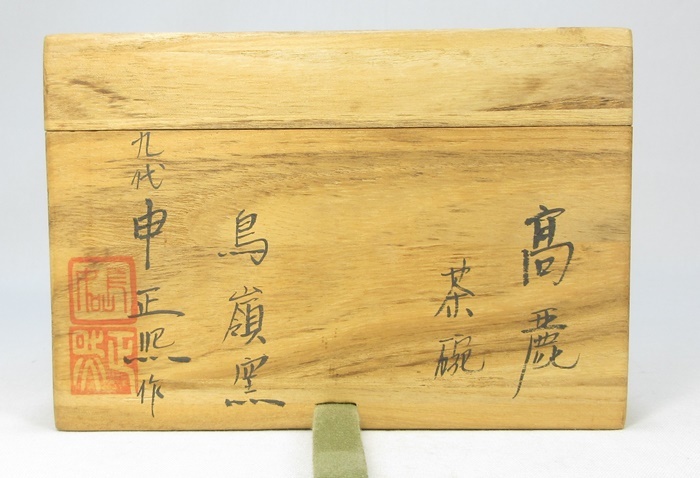 高麗
茶碗
鳥嶺窯
九代 申正熙作